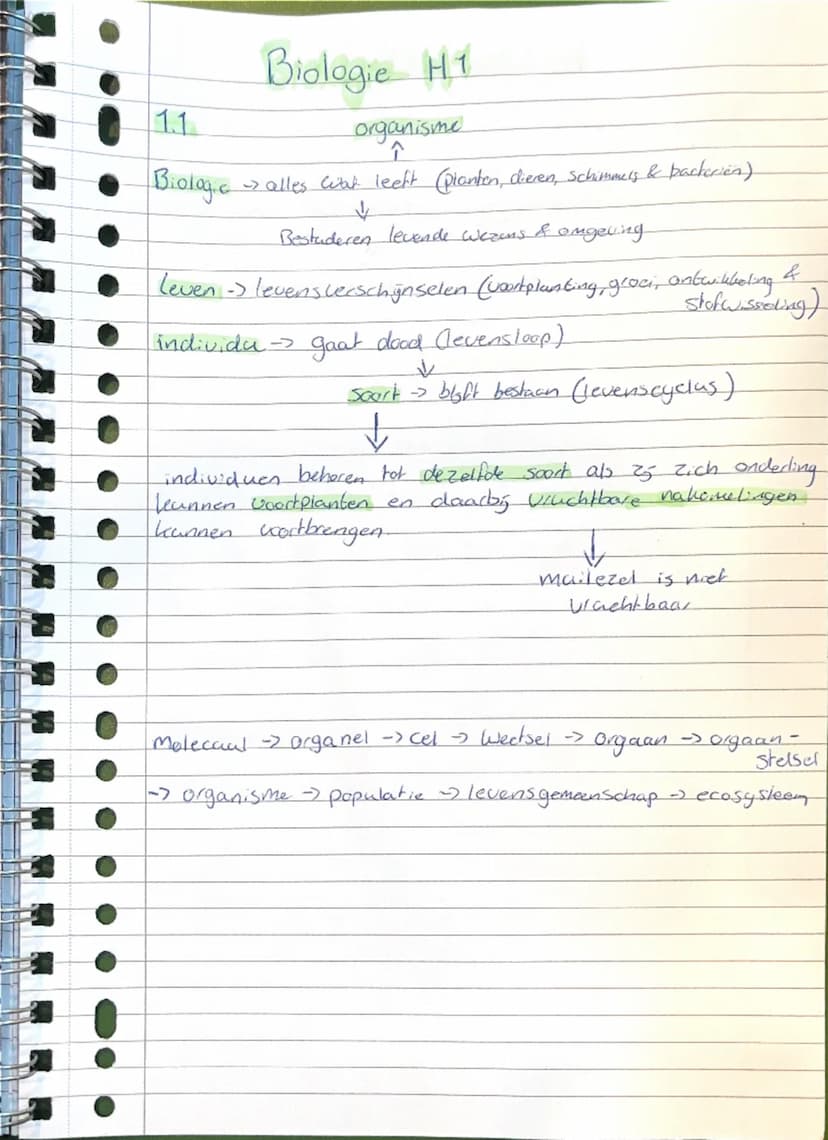 Biologie H1
1.1 organisme
↑
Biologie -> alles wat leeft (planten, dieren, schimmels & bacteriën)
↓
Bestuderen levende wezens & omgeving
leven -> levensverschijnselen (voortplanting, groei, ontwikkeling &
stofwisseling)
individu -> gaat dood (levensloop)
↓
soort -> blijft bestaan (levenscyclus)
↓
individuen behoren tot dezelfde soort als zij zich onderling
kunnen voortplanten en daarbij vruchtbare nakomelingen
kunnen voortbrengen.
↓
muilezel is niet
vruchtbaar
Molecuul -> organel -> cel -> Weefsel -> Orgaan -> orgaan-
stelsel
-> organisme -> populatie -> levensgemeenschap -> ecosysteem